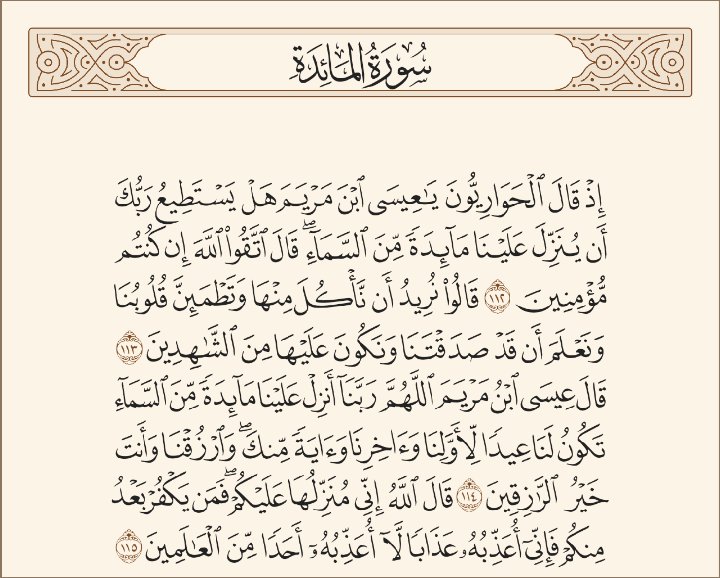 سُورَةُ المَائِدَةِ
إِذْ قَالَ ٱلْحَوَارِيُّونَ يَٰعِيسَى ٱبْنَ مَرْيَمَ هَلْ يَسْتَطِيعُ رَبُّكَ
أَن يُنَزِّلَ عَلَيْنَا مَآئِدَةً مِّنَ ٱلسَّمَآءِۖ قَالَ ٱتَّقُوا۟ ٱللَّهَ إِن كُنتُم
مُّؤْمِنِينَ ١١٢ قَالُوا۟ نُرِيدُ أَن نَّأْكُلَ مِنْهَا وَتَطْمَئِنَّ قُلُوبُنَا
وَنَعْلَمَ أَن قَدْ صَدَقْتَنَا وَنَكُونَ عَلَيْهَا مِنَ ٱلشَّٰهِدِينَ ١١٣
قَالَ عِيسَى ٱبْنُ مَرْيَمَ ٱللَّهُمَّ رَبَّنَآ أَنزِلْ عَلَيْنَا مَآئِدَةً مِّنَ ٱلسَّمَآءِ
تَكُونُ لَنَا عِيدًا لِّأَوَّلِنَا وَءَاخِرِنَا وَءَايَةً مِّنكَۖ وَٱرْزُقْنَا وَأَنتَ
خَيْرُ ٱلرَّٰزِقِينَ ١١٤ قَالَ ٱللَّهُ إِنِّى مُنَزِّلُهَا عَلَيْكُمْۖ فَمَن يَكْفُرْ بَعْدُ
مِنكُمْ فَإِنِّىٓ أُعَذِّبُهُۥ عَذَابًا لَّآ أُعَذِّبُهُۥٓ أَحَدًا مِّنَ ٱلْعَٰلَمِينَ ١١٥